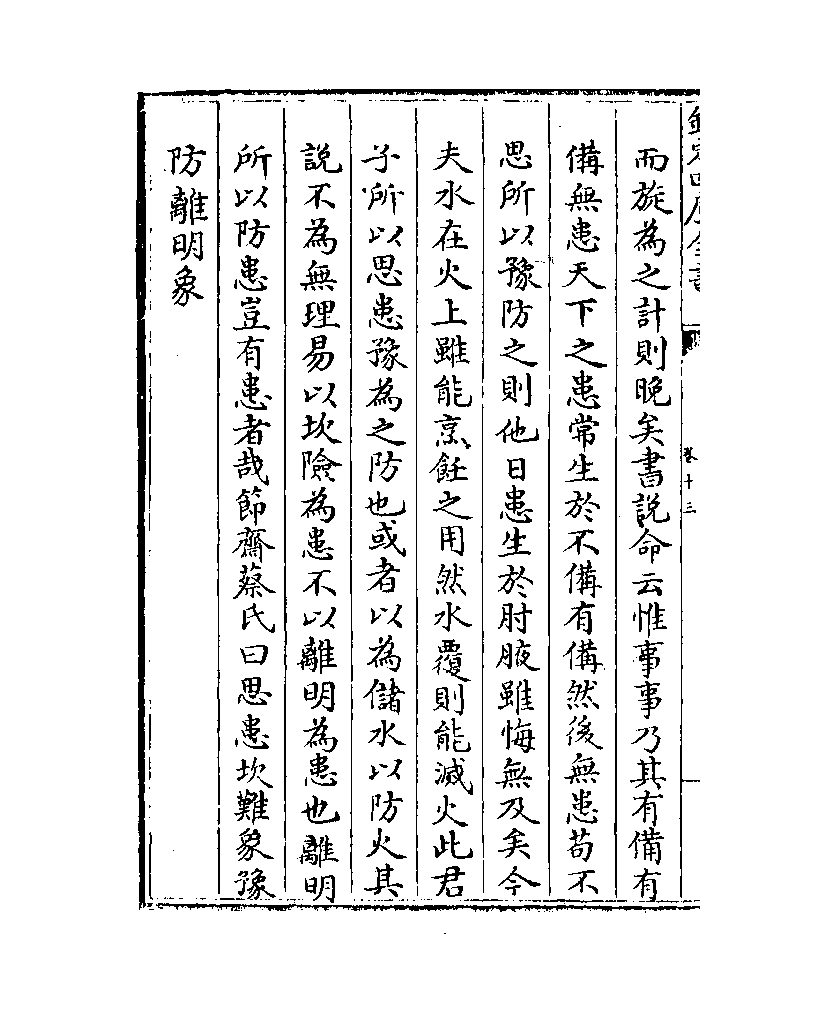 欽定四庫全書
卷十三
而旋為之計則晚矣書説命云惟事事乃其有備有
備無患天下之患常生於不備有備然後無患苟不
思所以豫防之則他日患生於肘腋雖悔無及矣今
夫水在火上雖能烹飪之用然水覆則能滅火此君
子所以思患豫為之防也或者以為儲水以防火其
說不為無理易以坎險為患不以離明為患也離明
所以防患豈有患者哉節齋蔡氏曰思患坎難象豫
防離明象